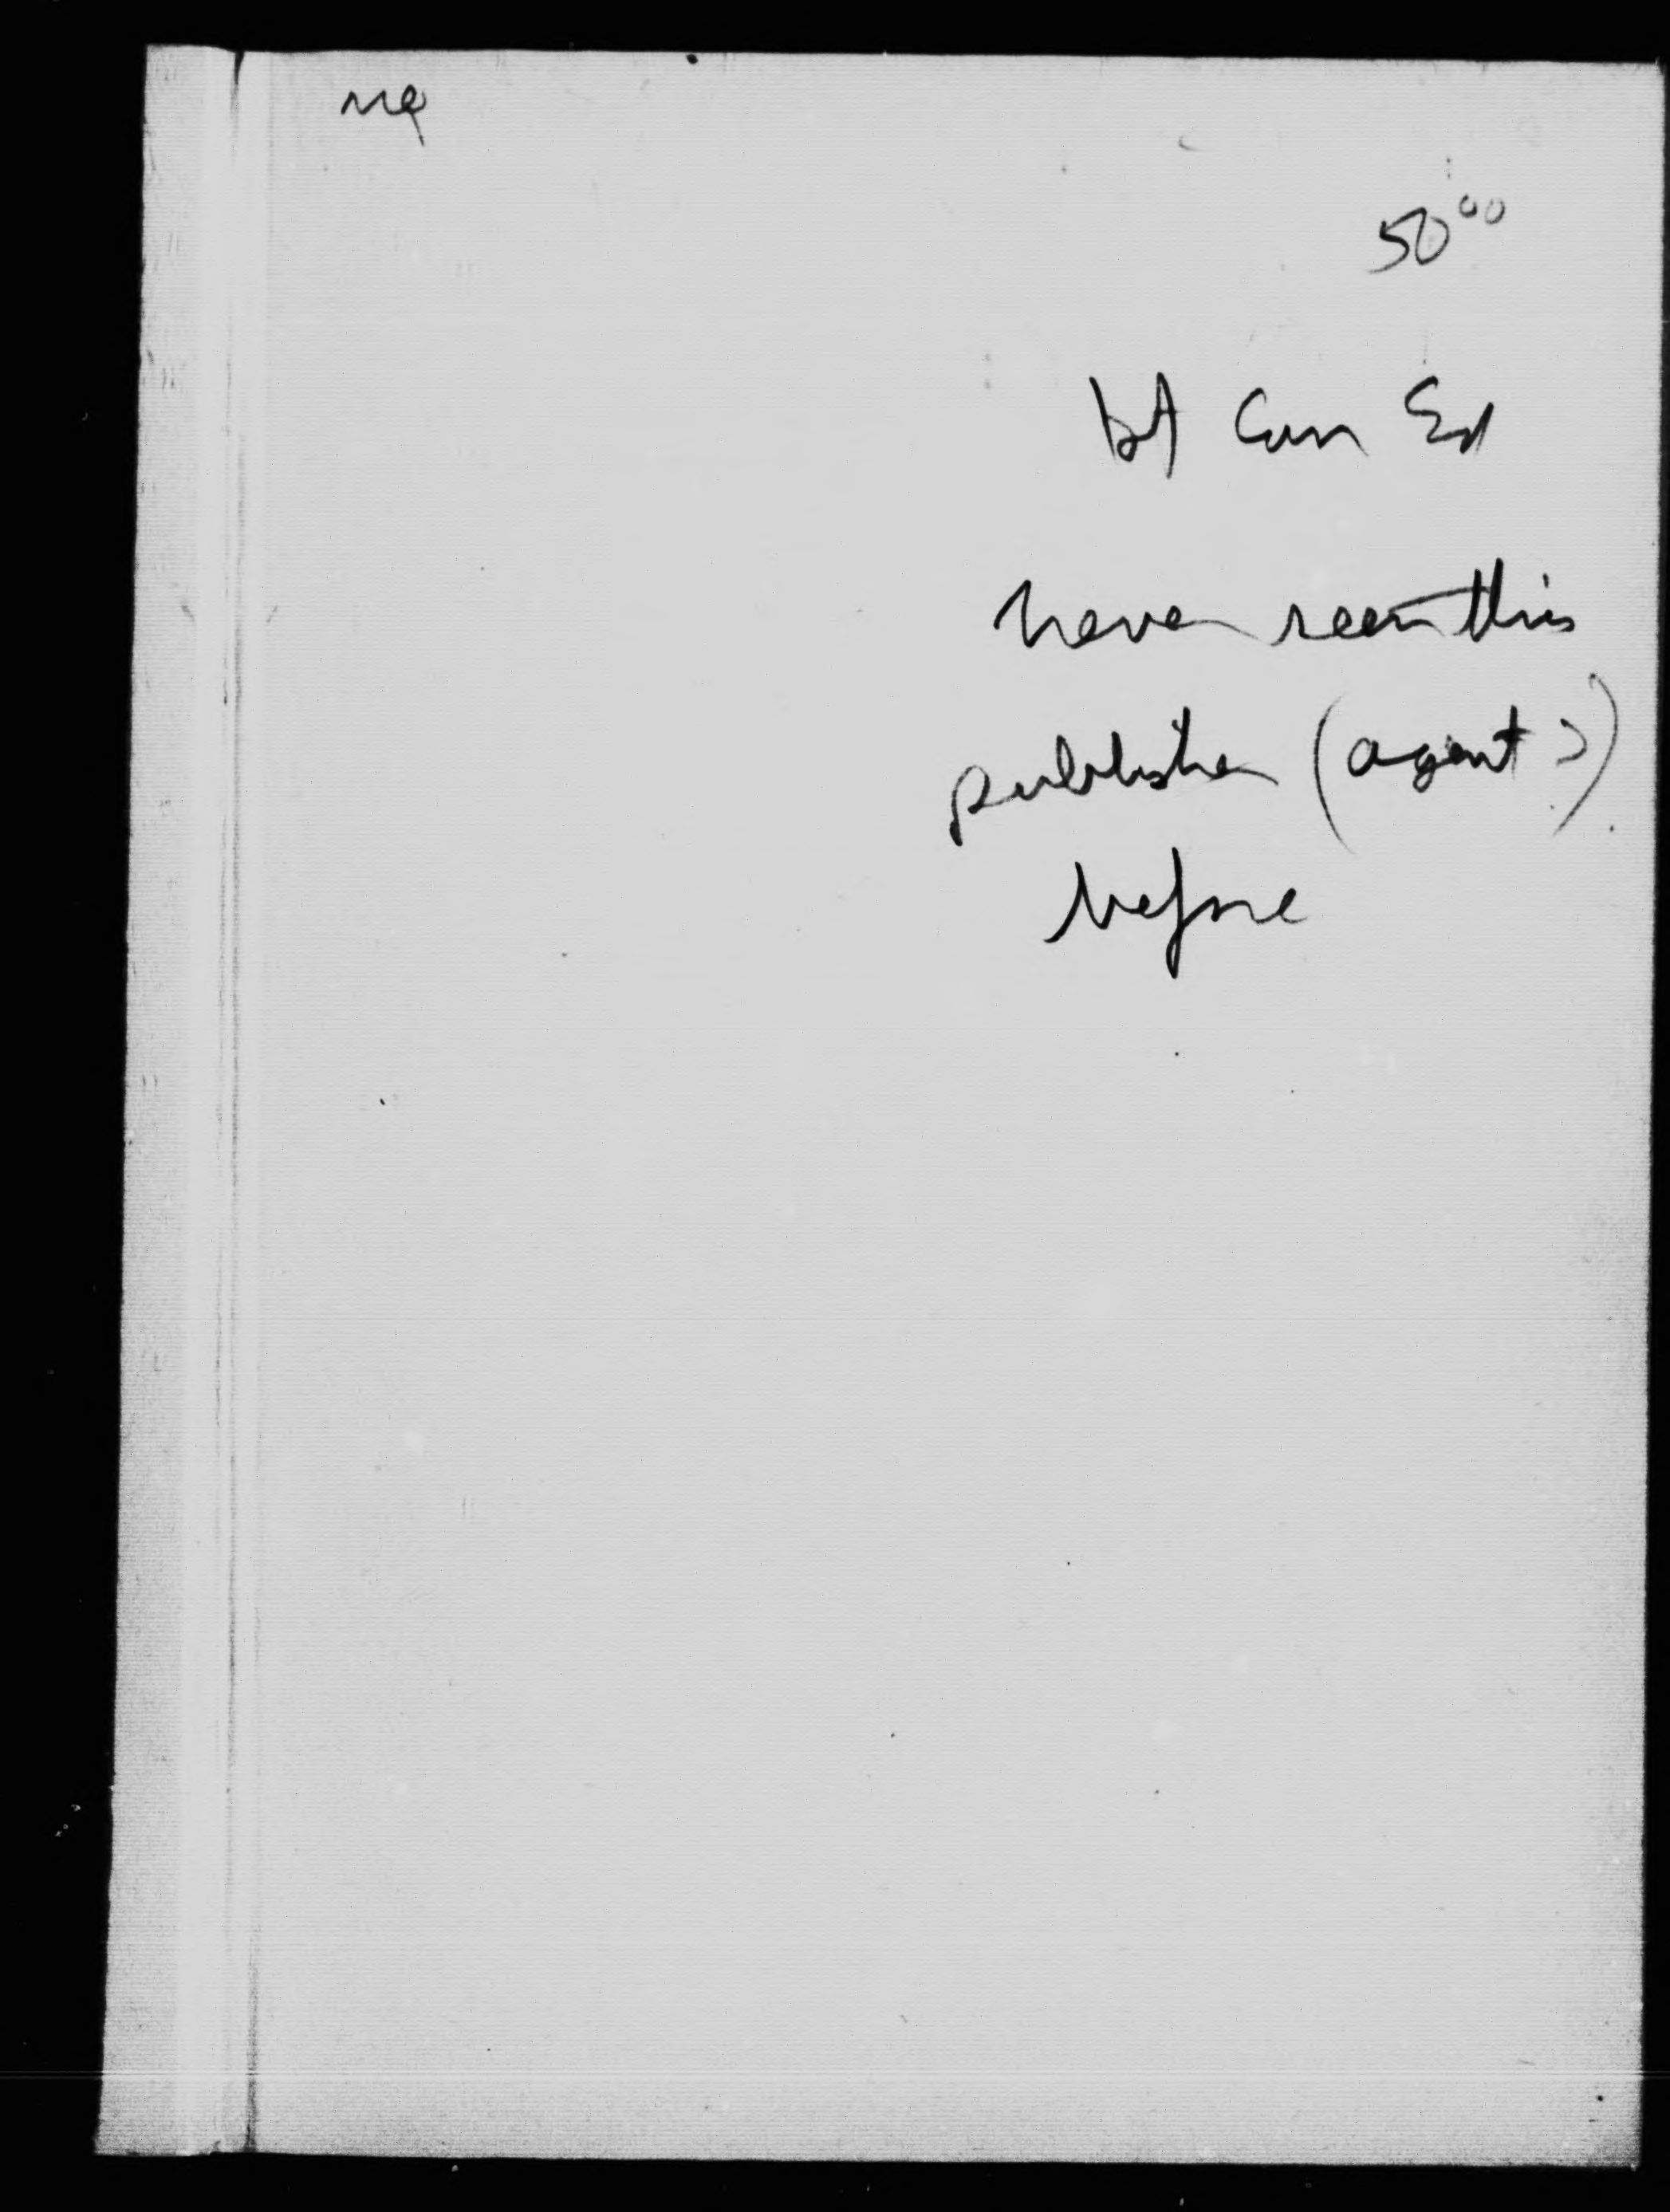 50 00
1st Can Ed
never seen this
publisher (agent?)
before